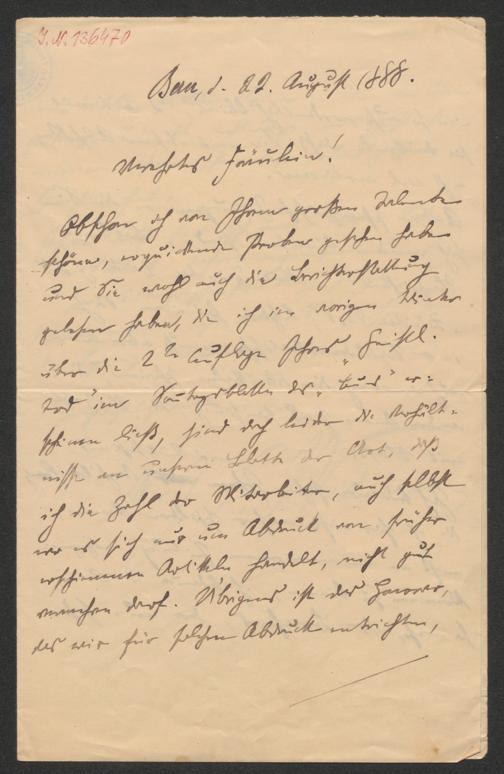 J.N. 136470
Bern, d. 22. August 1888.
Verehrtes Fräulein!
Obschon ich von Ihrem großen Talente
schöne, erquickende Proben gesehen habe
und Sie wohl auch die Berichterstattung
gelesen haben, die ich im vorigen Winter
über die 2te Auflage Ihres "Geistl.
Tod" im Sonntagsblatte des "Bund" er=
scheinen ließ, sind doch leider die Verhält=
nisse an unserm Blatte der Art, daß
ich die Zahl der Mitarbeiter, auch selbst
wo es sich nur um Abdruck von früher
erschienenen Artikeln handelt, nicht gut
vermehren darf. Übrigens ist das Honorar,
das wir für solchen Abdruck entrichten,